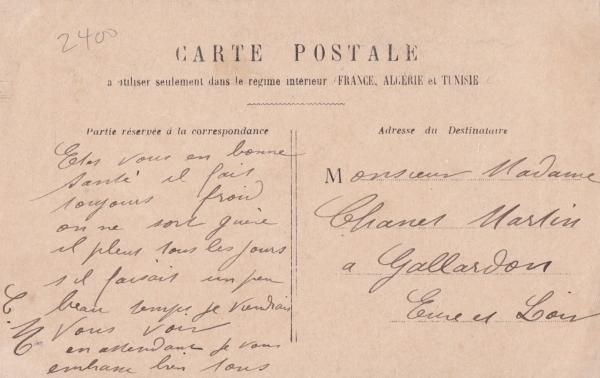 2400
CARTE POSTALE
a utiliser seulement dans le régime intérieur (FRANCE, ALGÉRIE et TUNISIE
Partie réservée à la correspondance
Etes vous en bonne
santé il fait
toujours froid
on ne sort guère
il pleut tous les jours
s il faisait un peu
beau temps je viendrais
vous voir
en attendant je vous
embrasse bien tous
Adresse du Destinataire
Monsieur Madame
Chanet Martin
a Gallardon
Eure et Loir